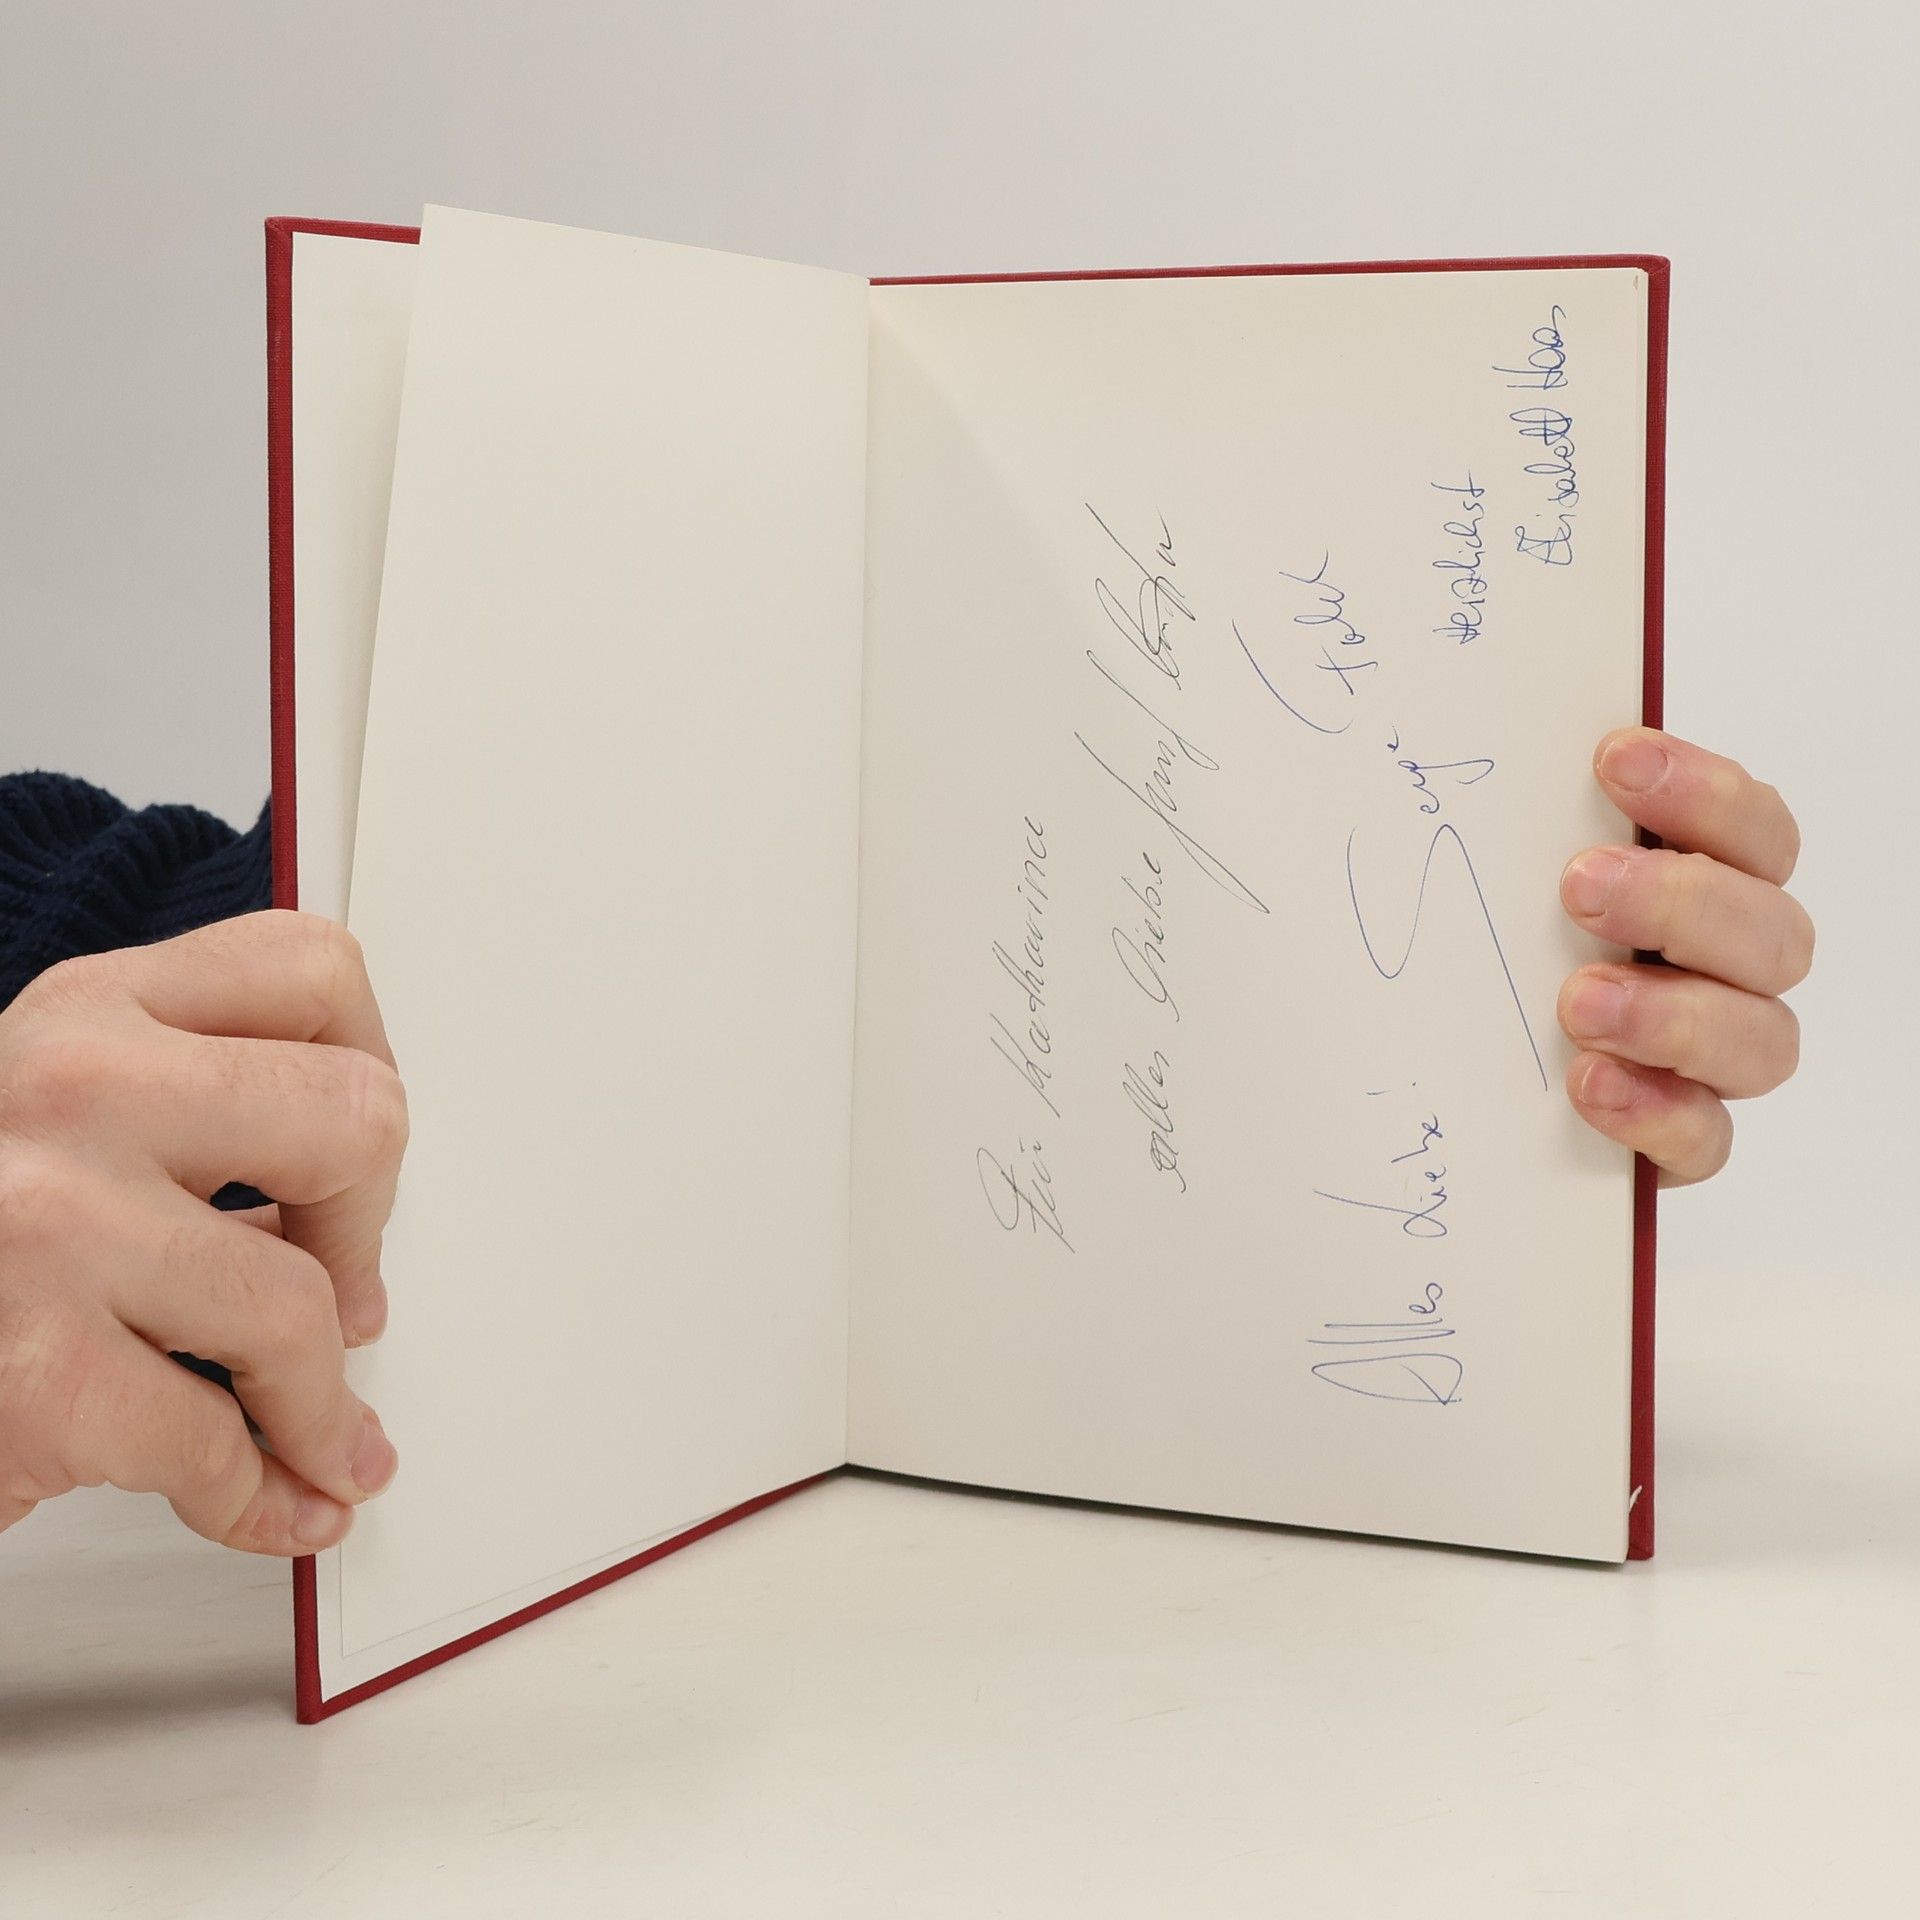 Für Katharina
alles Liebe
Alles Liebe!
Serge Falck
Herzlichst
Elisabeth Haas